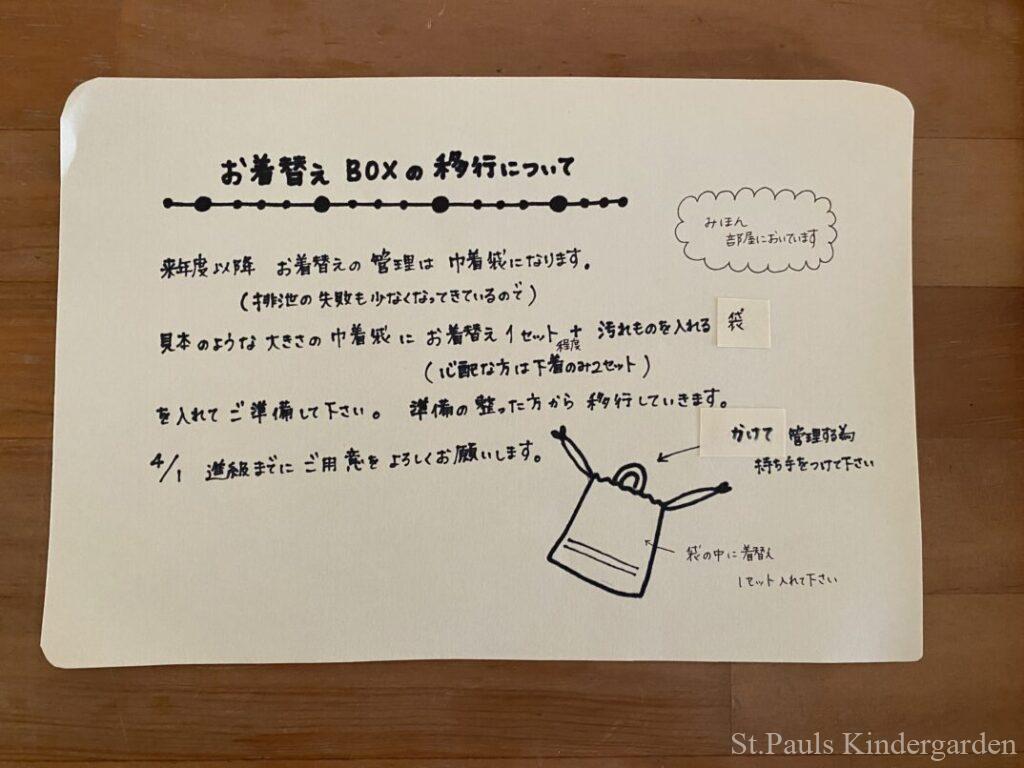 お着替えBOXの移行について
みほん
部屋においています
来年度以降 お着替えの管理は巾着袋になります。
(排泄の失敗も少なくなってきているので)
見本のような大きさの巾着袋にお着替え1セット程度+汚れものを入れる袋
(心配な方は下着のみ2セット)
を入れてご準備して下さい。 準備の整った方から移行していきます。
4/1 進級までにご用意をよろしくお願いします。
かけて管理する為
持ち手をつけて下さい
袋の中に着替え
1セット入れて下さい
St.Pauls Kindergarden